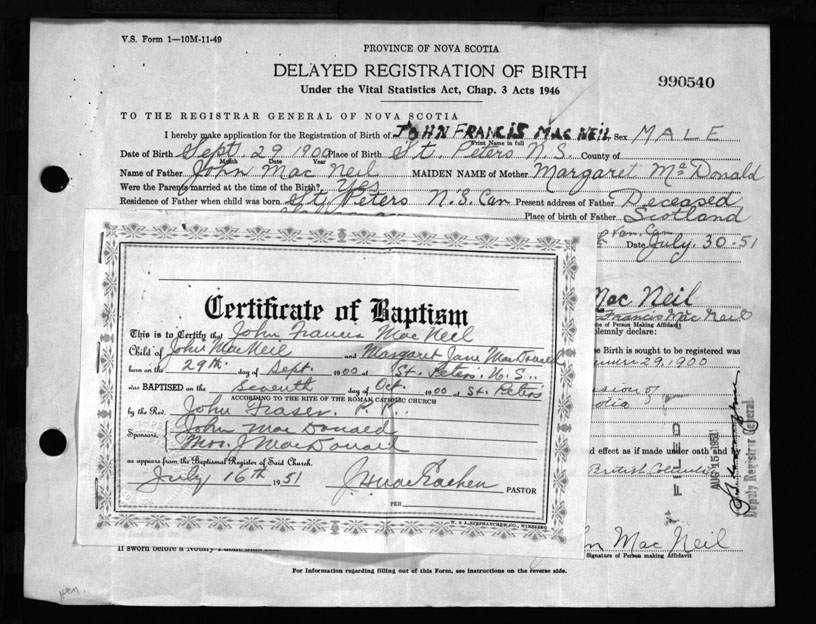 V.S. Form 1—10M-11-49
PROVINCE OF NOVA SCOTIA
DELAYED REGISTRATION OF BIRTH
990540
Under the Vital Statistics Act, Chap. 3 Acts 1946
TO THE REGISTRAR GENERAL OF NOVA SCOTIA
I hereby make application for the Registration of Birth of JOHN FRANCIS MAC NEIL Sex MALE
Print Name in full
Date of Birth Sept. 29 1900 Place of Birth St. Peters N.S. County of
Month Date Year
Name of Father John Mac Neil MAIDEN NAME of Mother Margaret McDonald
Were the Parents married at the time of the Birth? Yes
Residence of Father when child was born St. Peters N.S. Can Present address of Father Deceased
Place of birth of Father Scotland
Date July. 30-51
Mac Neil
Francis Mac Neil
me of Person Making Affidavit
olemnly declare:
e Birth is sought to be registered was
29, 1900
d effect as if made under oath and by
British Columbia
FILED
AUG 15 1951
Deputy Registrar General
hn Mac Neil
Signature of Person making Affidavit
Certificate of Baptism
This is to Certify that John Francis Mac Neil
Child of John MacNeil and Margaret Jane MacDonald
born on the 29th day of Sept. 1900 at St. Peters' N.S..
was BAPTISED on the Seventh day of Oct. 1900 at St. Peters'
ACCORDING TO THE RITE OF THE ROMAN CATHOLIC CHURCH
by the Rev. John Fraser. P.P..
Sponsors John MacDonald
Mrs. J MacDonald
as appears from the Baptismal Register of Said Church.
July 16th 1951 PASTOR
PER
W. & L. STEPHANCHEW CO., WINNIPEG
If sworn before a Notary
For Information regarding filling out of this Form, see instructions on the reverse side.